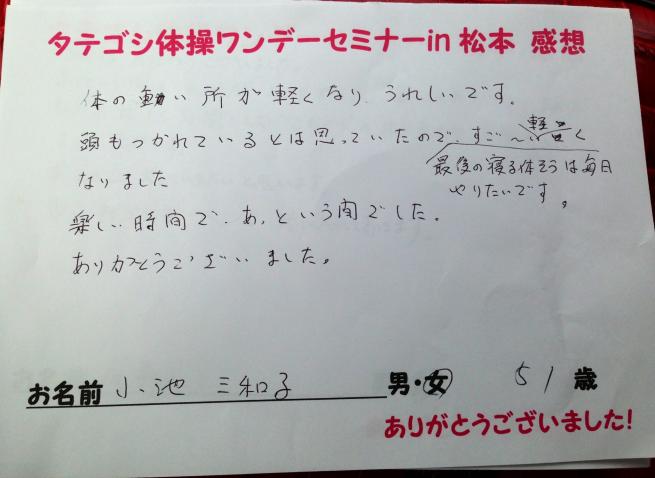 タテゴシ体操ワンデーセミナーin 松本 感想
体の重い所が軽くなり うれしいです。
頭もつかれているとは思っていたので、すご～く軽く
なりました
最後の寝る体そうは毎日
やりたいです。
楽しい時間で、あっという間でした。
ありがとうございました。
お名前 小池 三和子 男・女 51 歳
ありがとうございました!